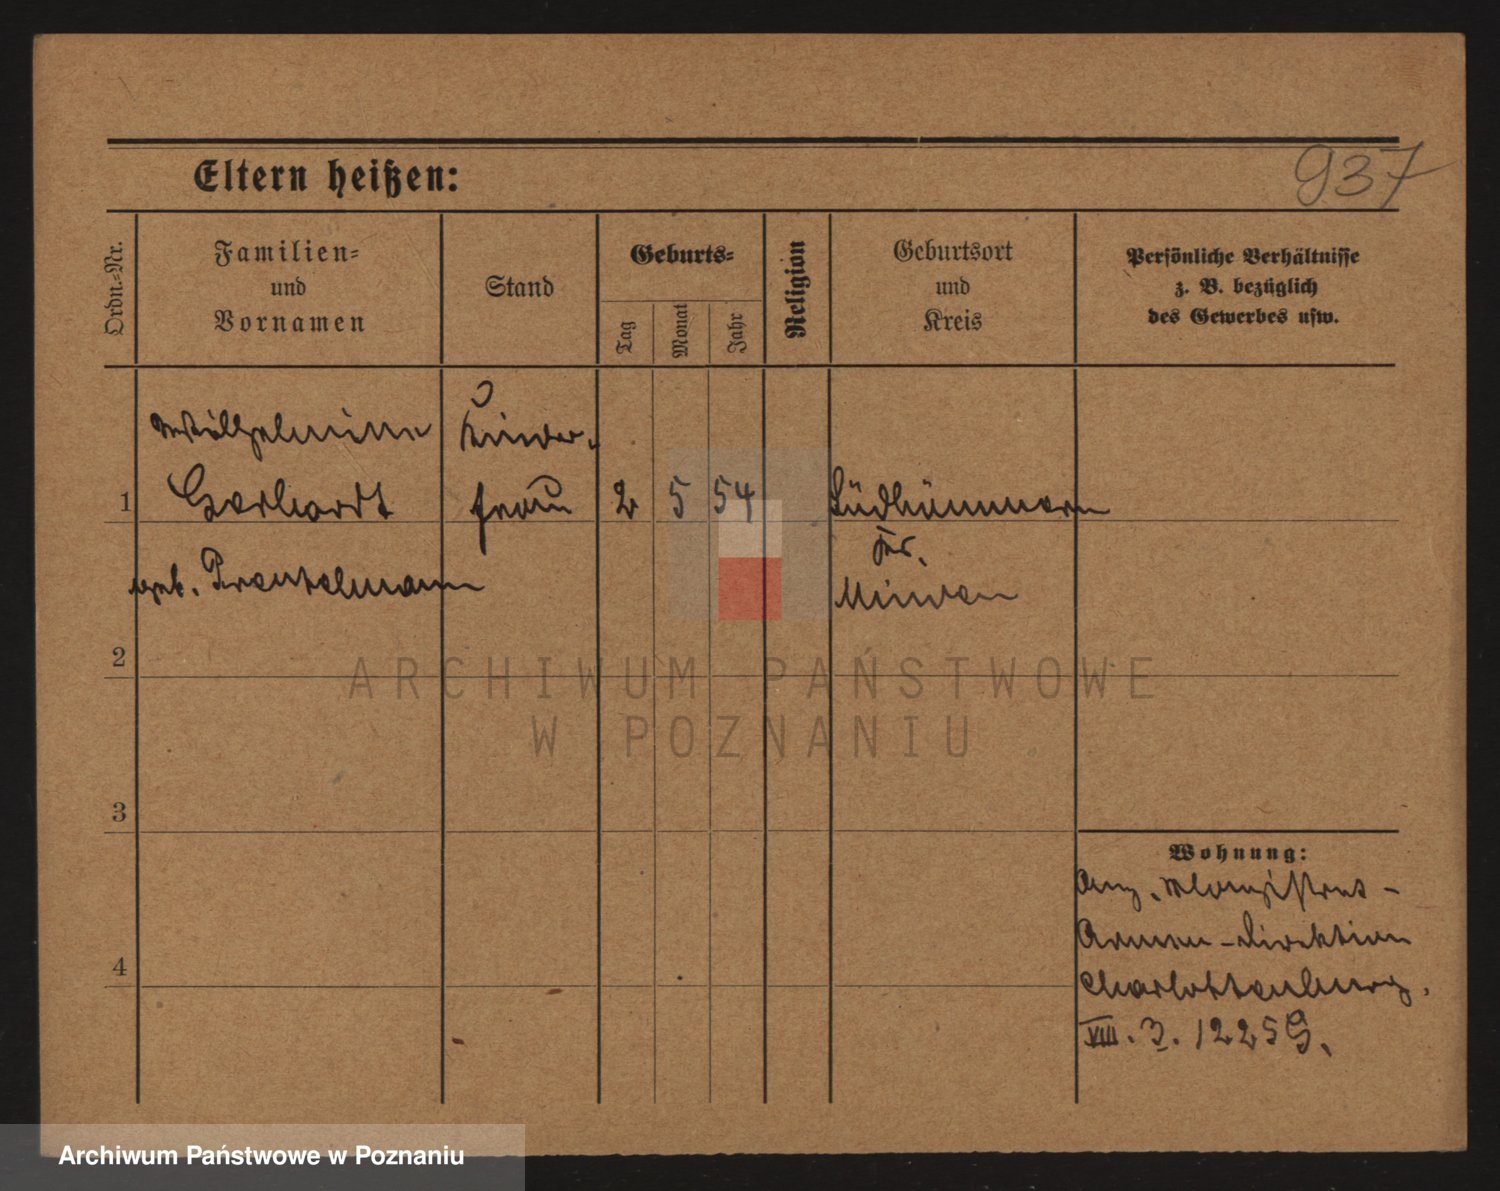 937
Eltern heißen:
Ordn.-Nr.
Familien-
und
Vornamen
Stand
Geburts-
Tag
Monat
Jahr
Religion
Geburtsort
und
Kreis
Persönliche Verhältnisse
z. B. bezüglich
des Gewerbes usw.
Wilhelmine Kinder-
1 Gerhardt frau 2 5 54 Südhemmern
Kr.
geb. Prantelmann Minden
2
3
4
Wohnung:
Magistrat-
Armen-Direktion
Charlottenburg.
VIII. 3. 1225 G.
ARCHIWUM PAŃSTWOWE
W POZNANIU
Archiwum Państwowe w Poznaniu